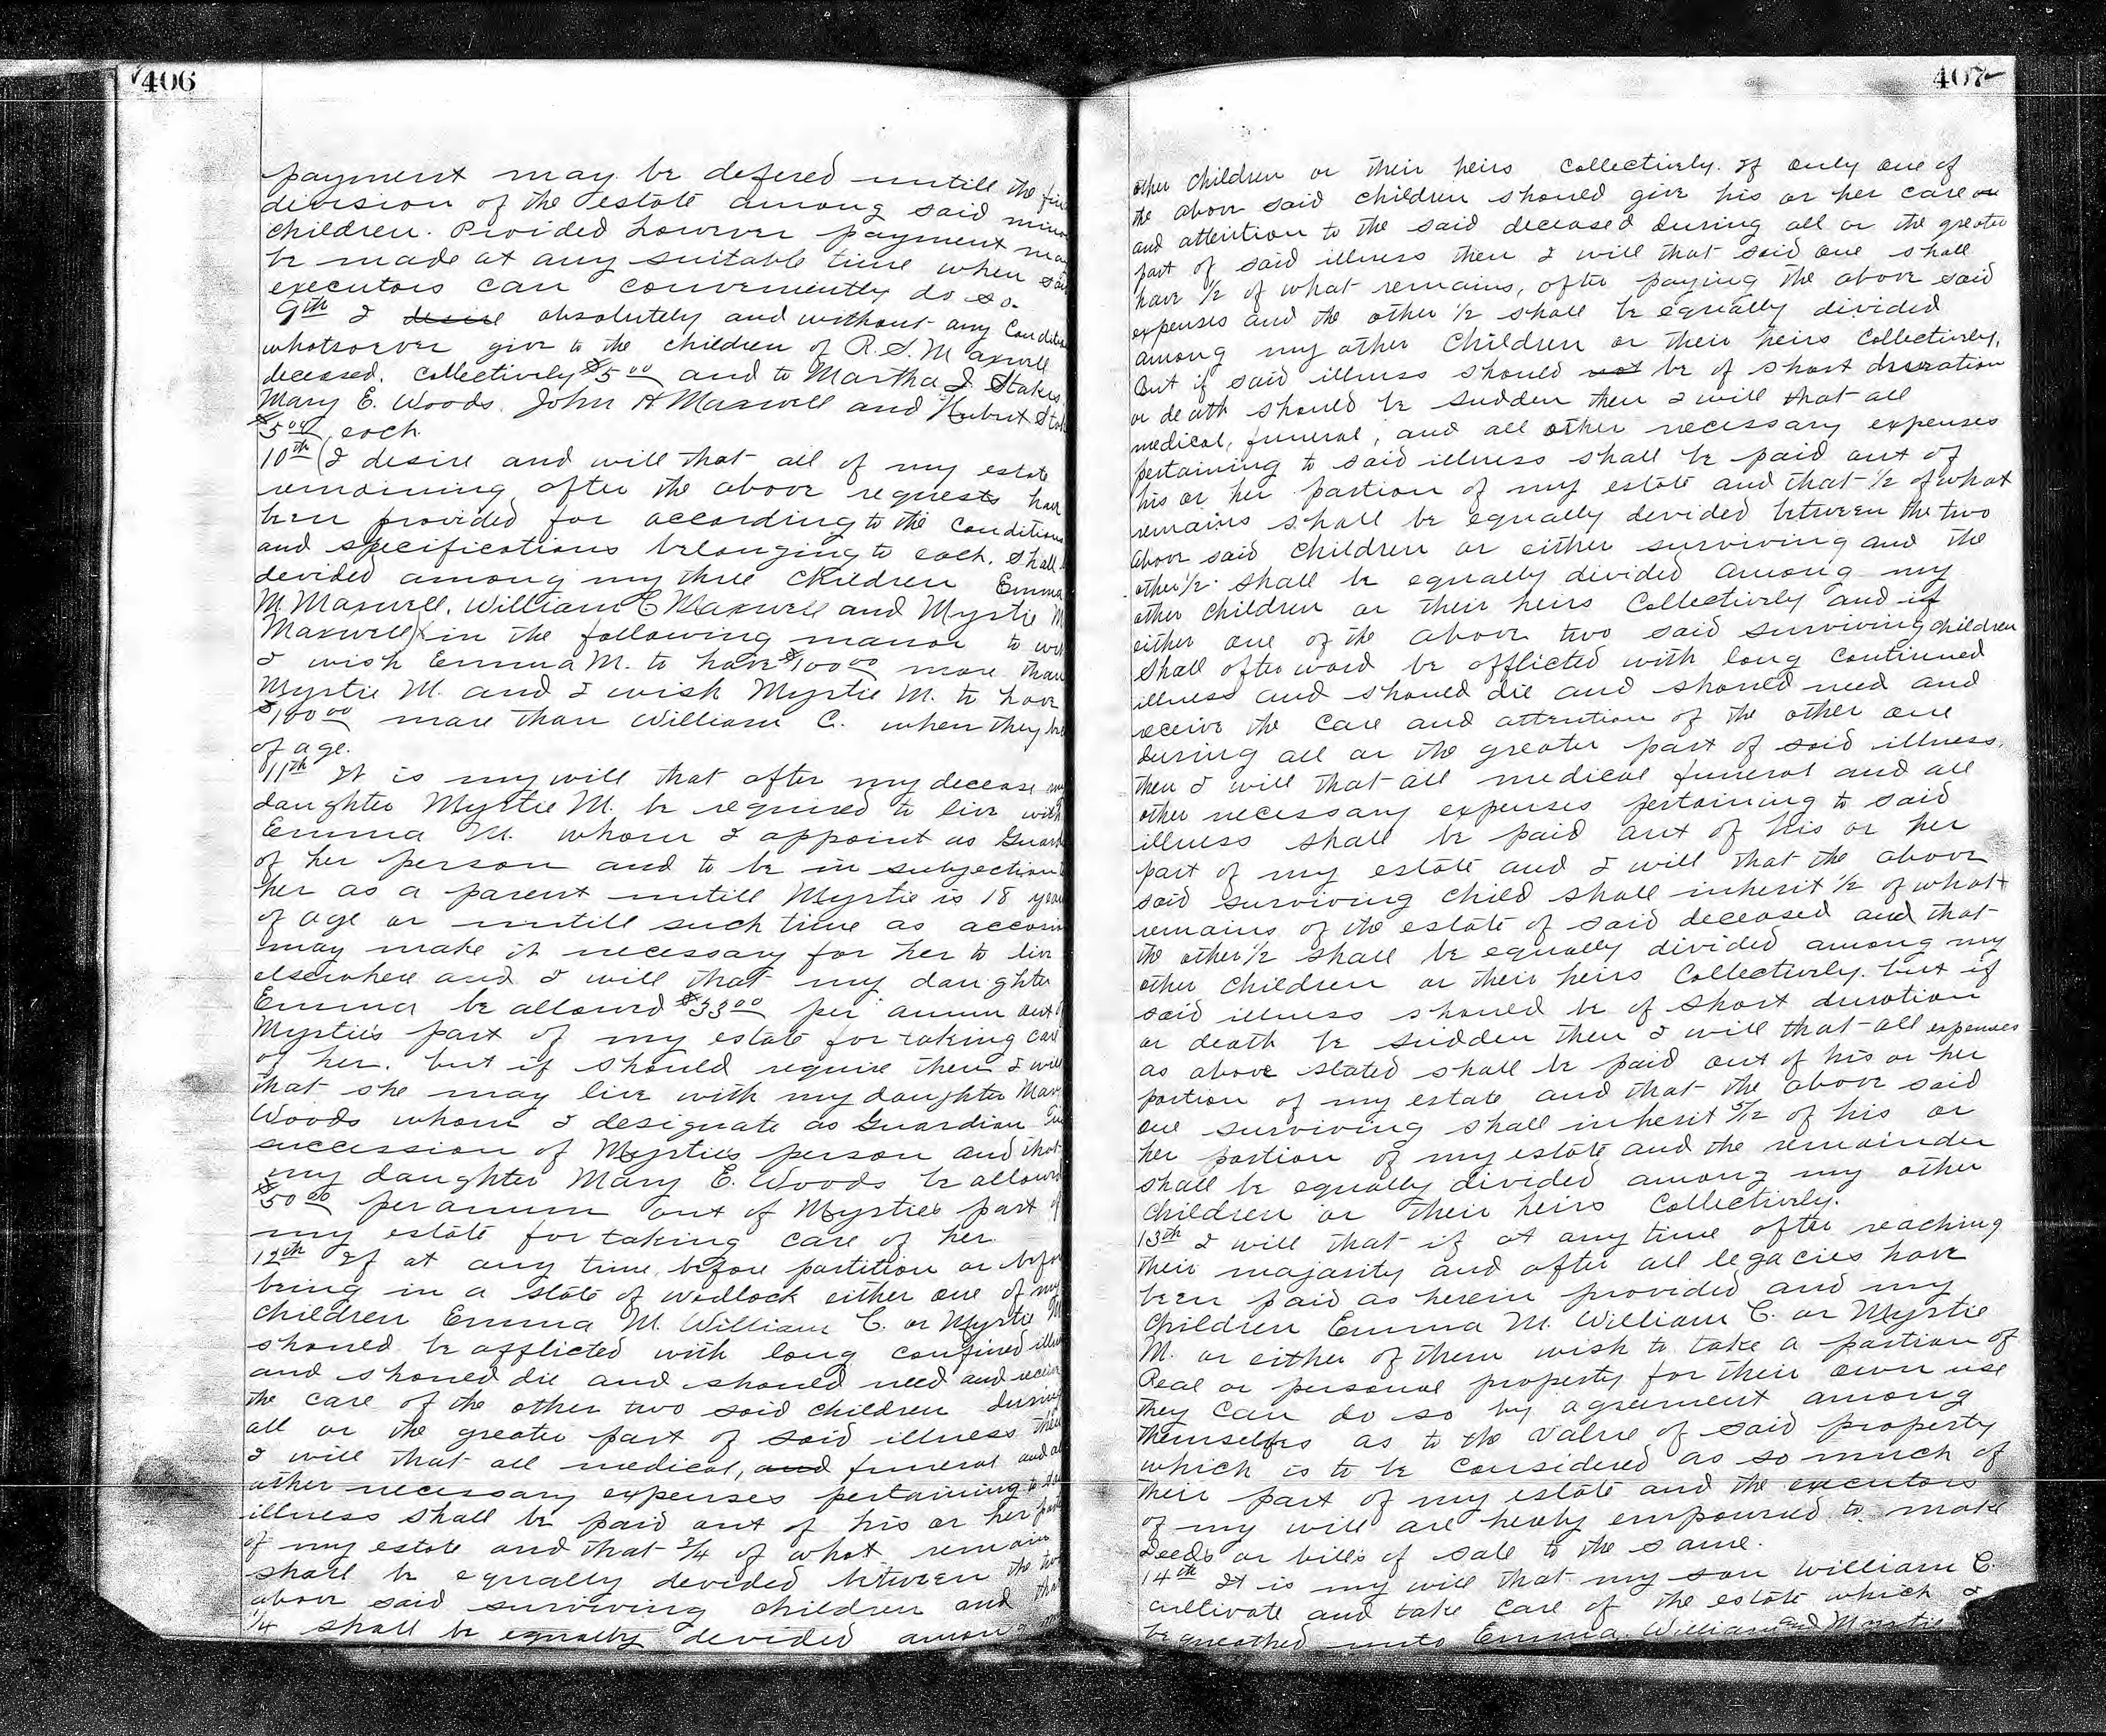 406
payment may be defered untill the
devision of the estate among said minor
children. Provided however payment may
be made at any suitable time when said
executors can conveniently do so.
9th I desire absolutely and without any Condition
whatsoever give to the children of R. S. Maxwell
deceased. Collectively $5 00 and to Martha J. Stakes
Mary E. Woods. John H Maxwell and Hubert
$5 00 each.
10th (I desire and will that all of my estate
remaining after the above requests have
been provided for according to the Conditions
and specifications belonging to each. shall
devided among my three Children Emma
M. Maxwell. William C Maxwell and Myrtie M
Maxwell) in the following manor to wit
I wish Emma M. to have $100 00 more than
Myrtie M. and I wish Myrtie M. to have
$100 00 more than William C. when they
of age.
11th It is my will that after my decease my
daughter Myrtie M. be required to live with
Emma M. whom I appoint as
of her person and to be in subjection
her as a parent untill Myrtie is 18 years
of age or untill such time as
may make it necessary for her to live
elsewhere and I will that my daughter
Emma be allowed $33 00 per annum out
Myrtie's part of my estate for taking care
of her. but if should require then I will
that she may live with my daughter
Woods whom I designate as Guardian in
succession of Myrties person and that
my daughter Mary E. Woods be allowed
$50 00 per annum out of Myrties part of
my estate for taking care of her
12th If at any time before partition or before
being in a state of wedlock either one of my
Children Emma M. William C. or Myrtie M
should be afflicted with long confined
and should die and should need and receive
the care of the other two said children during
all or the greater part of said illness then
I will that all medical, and funeral and all
other necessary expenses pertaining to
illness shall be paid out of his or her part
of my estate and that 3/4 of what remains
shall be equally devided between the two
above said surviving children and that
1/4 shall be equally devided among
407
other children or their heirs Collectively. If only one of
the above said children should give his or her care
and attention to the said deceased during all or the greater
part of said illness then I will that said one shall
have 1/2 of what remains, after paying the above said
expenses and the other 1/2 shall be equally divided
among my other Children or their heirs Collectively,
But if said illness should not be of short duration
or death should be sudden then I will that all
medical, funeral, and all other necessary expenses
pertaining to said illness shall be paid out of
his or her portion of my estate and that 1/2 of what
remains shall be equally devided between the two
above said Children or either surviving and the
other 1/2 shall be equally divided among my
other children or their heirs Collectively and if
either one of the above two said surviving children
shall afterward be afflicted with long continued
illness and should die and should need and
receive the care and attention of the other one
during all or the greater part of said illness,
then I will that all medical funeral and all
other necessary expenses pertaining to said
illness shall be paid out of his or her
part of my estate and I will that the above
said surviving child shall inherit 1/2 of what
remains of the estate of said deceased and that
the other 1/2 shall be equally divided among my
other Children or their heirs Collectively. but if
said illness should be of short duration
or death be sudden then I will that all expenses
as above stated shall be paid out of his or her
portion of my estate and that the above said
one surviving shall inherit 5/12 of his or
her portion of my estate and the remainder
shall be equally divided among my other
children or their heirs Collectively.
13th I will that if at any time after reaching
their majority and after all legacies have
been paid as herein provided and my
Children Emma M. William C. or Myrtie
M. or either of them wish to take a portion of
Real or personal property for their own use
they can do so by agreement among
themselfes as to the value of said property
which is to be considered as so much of
their part of my estate and the executors
of my will are heaby empowered to make
Deeds or bills of sale to the same.
14th It is my will that my son William C.
cultivate and take care of the estate which I
bequeathed unto Emma. William and Myrtie